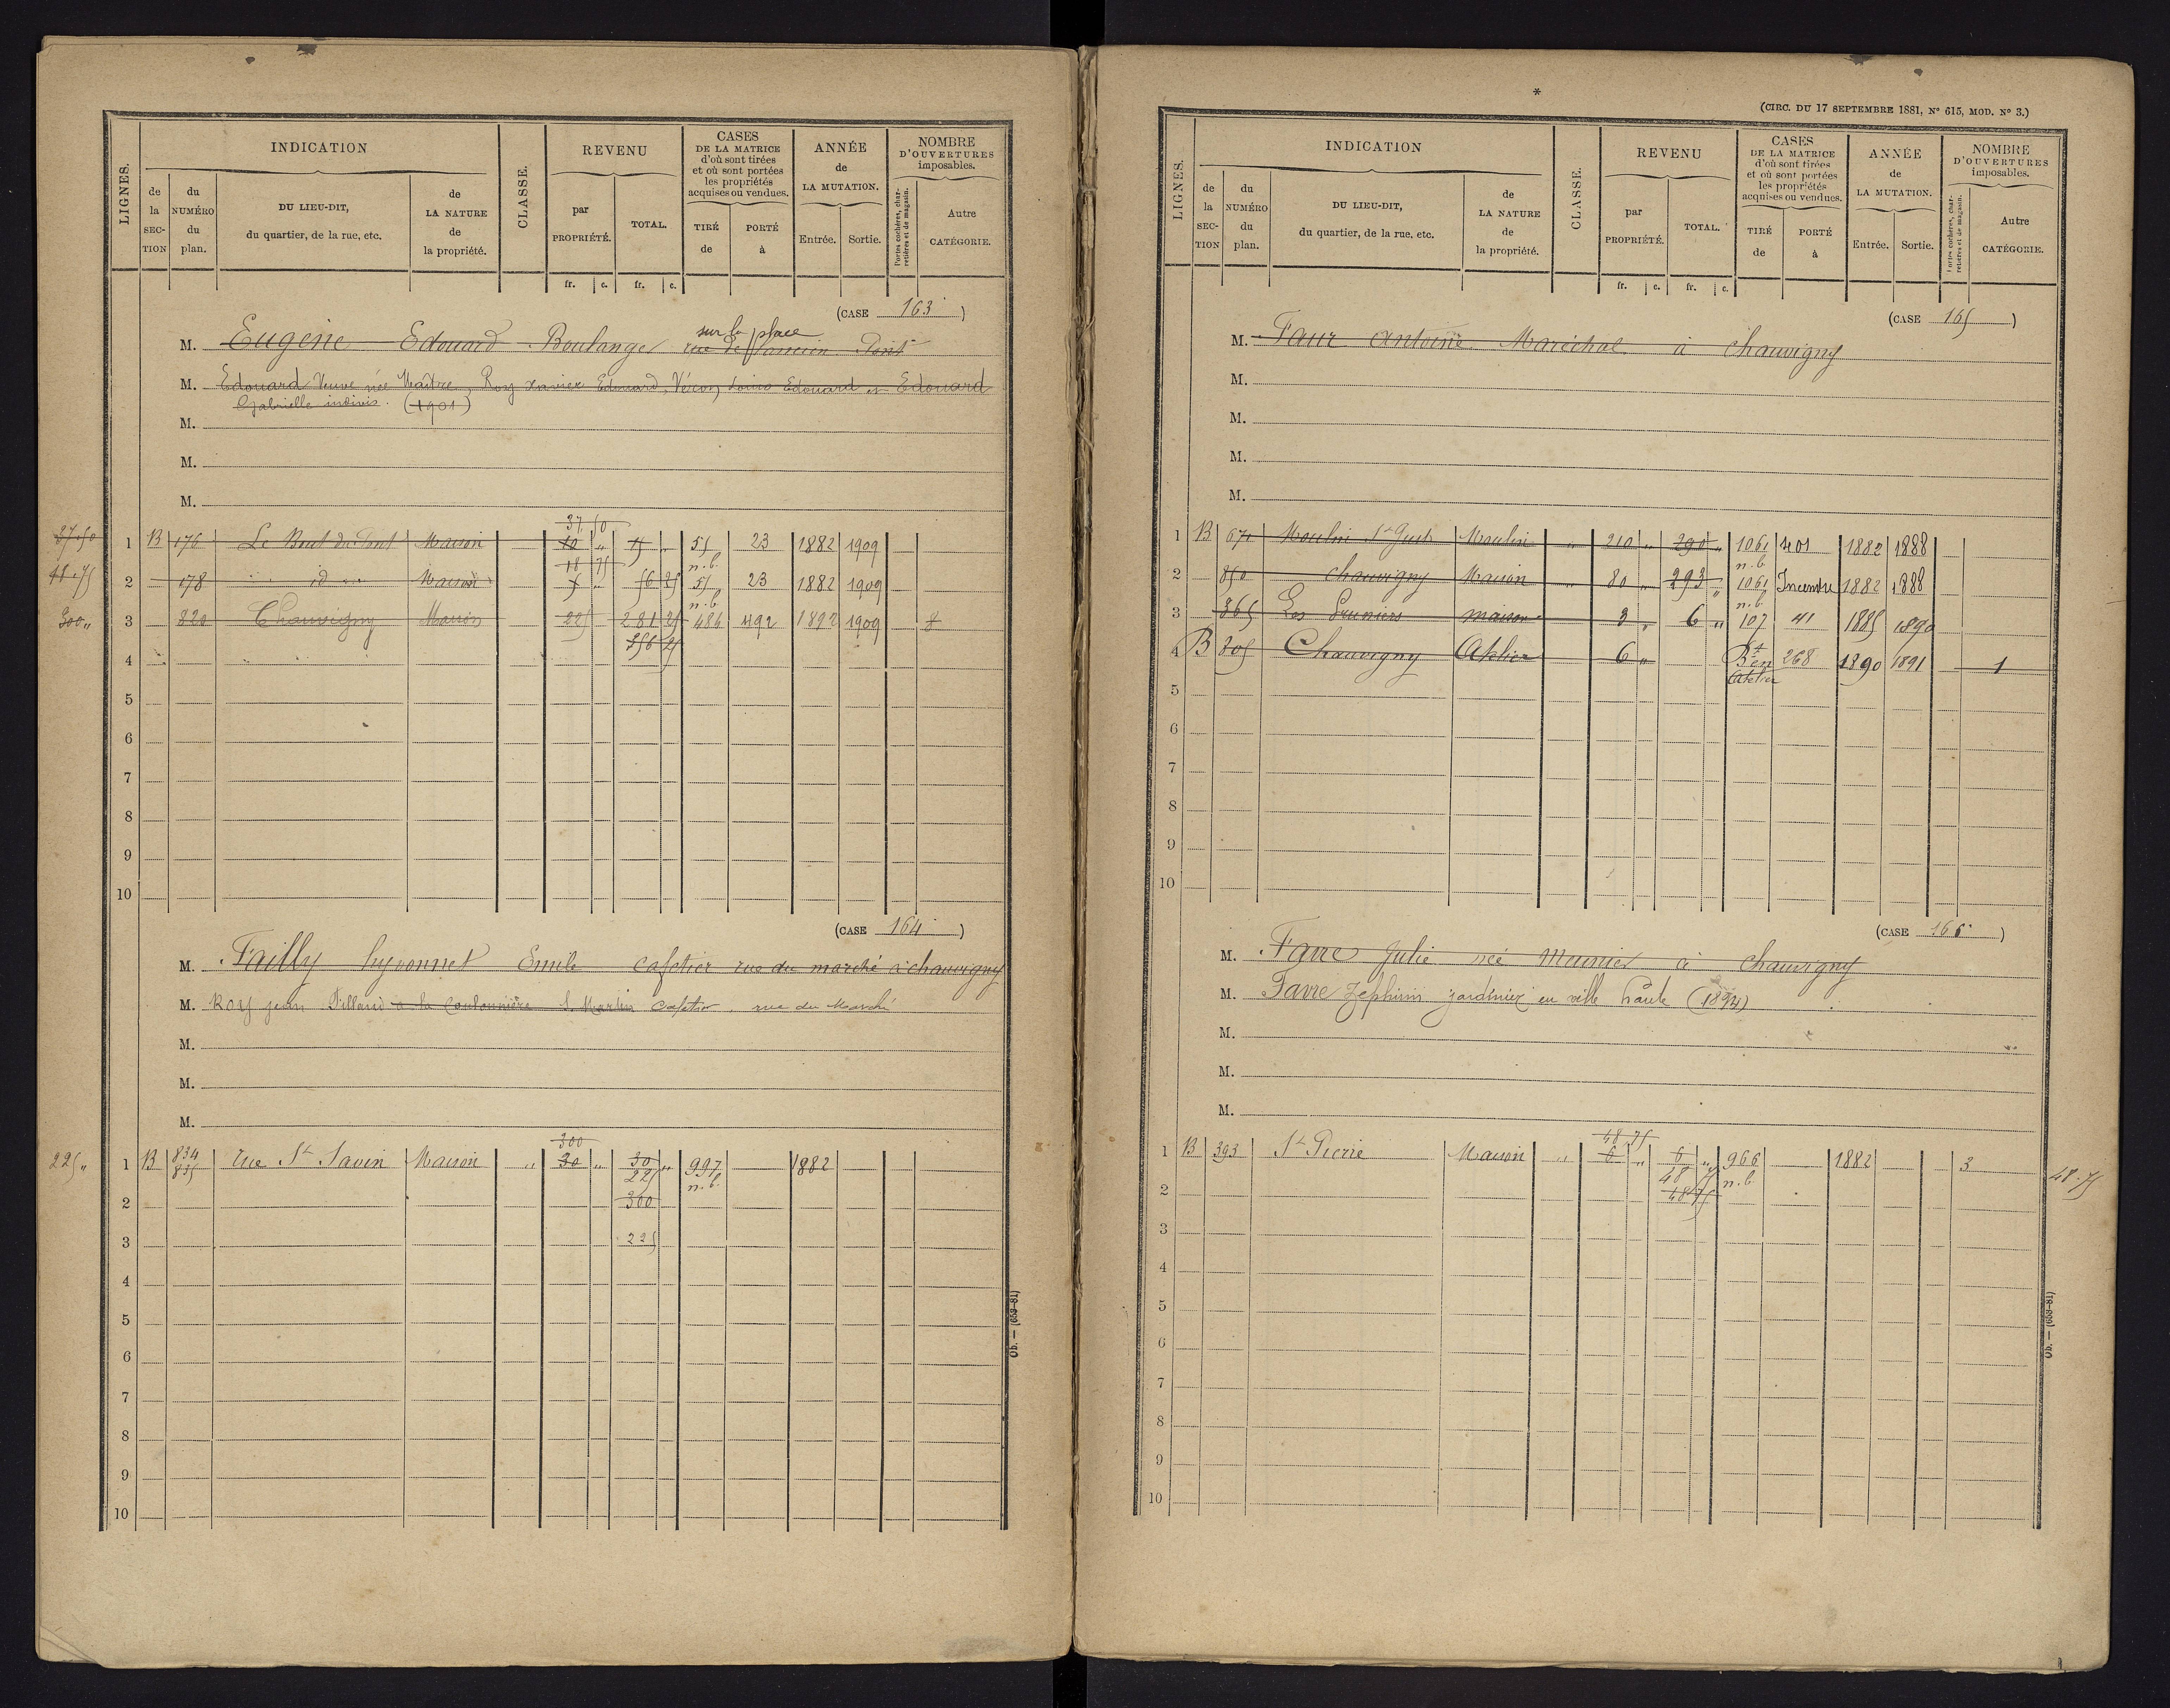 LIGNES.
INDICATION
de la SECTION
du NUMÉRO du plan.
DU LIEU-DIT, du quartier, de la rue, etc.
de LA NATURE de la propriété.
CLASSE.
REVENU
par PROPRIÉTÉ.
TOTAL.
CASES DE LA MATRICE d'où sont tirées et où sont portées les propriétés acquises ou vendues.
TIRÉ de
PORTÉ à
ANNÉE de LA MUTATION.
Entrée.
Sortie.
NOMBRE D'OUVERTURES imposables.
Portes cochères, charretières et de magasin.
Autre CATÉGORIE.
fr. c. fr. c.
(CASE 163)
sur la place
M. Eugène Edouard Boulanger rue de l'ancien Pont
M. Edouard Veuve née Maître, Roy Xavier Edouard, Louis Edouard et Edouard
Gabrielle indivis. (1901)
M.
M.
M.
37 50
37.50 1 B 176 Le Bout du Pont Maison 10 " 15 " 51 23 1882 1909
18 75 n.b.
18.75 2 178 id Maison 5 " 56 25 51 23 1882 1909
n.b.
300 " 3 820 Chauvigny Maison 225 281 25 486 492 1892 1909
356 25
4
5
6
7
8
9
10
(CASE 164)
M. Failly Emile cafetier rue du marché à chauvigny
M. Roy jean à la St Martin cafetier, rue du Marché
M.
M.
M.
300
225 " 1 B 834 835 rue St Savin Maison " 30 " 30 " 997 1882
225 n.b.
2 300
3 225
4
5
6
7
8
9
10
Ob. — (653-81)
*
(CIRC. DU 17 SEPTEMBRE 1881, N° 615, MOD. N° 3.)
LIGNES.
INDICATION
de la SECTION
du NUMÉRO du plan.
DU LIEU-DIT, du quartier, de la rue, etc.
de LA NATURE de la propriété.
CLASSE.
REVENU
par PROPRIÉTÉ.
TOTAL.
CASES DE LA MATRICE d'où sont tirées et où sont portées les propriétés acquises ou vendues.
TIRÉ de
PORTÉ à
ANNÉE de LA MUTATION.
Entrée.
Sortie.
NOMBRE D'OUVERTURES imposables.
Portes cochères, charretières et de magasin.
Autre CATÉGORIE.
fr. c. fr. c.
(CASE 165)
M. Faur Antoine Maréchal à Chauvigny
M.
M.
M.
M.
1 B 671 Moulin St Just Moulin " 210 " 290 " 1061 401 1882 1888
n.b.
2 850 chauvigny Maison 80 " 293 " 1061 Incendie 1882 1888
n.b.
3 365 Les Pruniers maison 3 " 6 " 107 41 1885 1890
4 B 805 Chauvigny Atelier 6 " Bt en 268 1890 1891 1
Atelier
5
6
7
8
9
10
(CASE 166)
M. Favre Julie née Meunier à chauvigny
M. Favre Zéphirin jardinier en ville haute (1894)
M.
M.
M.
48 75
1 B 393 St Pierre Maison " 6 " 6 " 966 1882 3 48.75
48 75 n.b.
2 48 75
3
4
5
6
7
8
9
10
Ob. — (653-81)